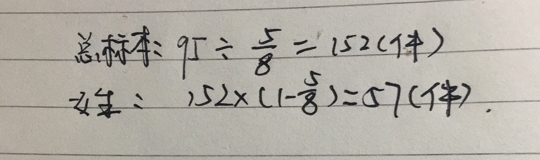 总标本：95÷5/8=152(件)
女生：152×(1-5/8)=57(件).